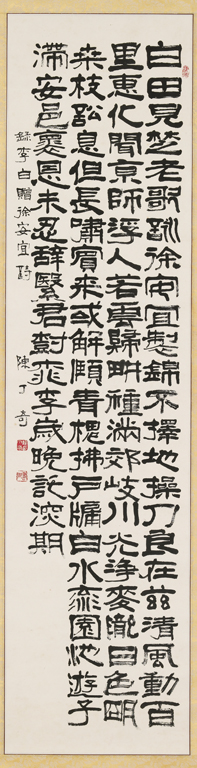 白田見楚老歌詠徐安宜製錦不擇地操刀良在茲清風動百
里惠化聞京師浮人若雲歸耕種滿郊岐川光淨麥隴日色明
桑枝訟息但長嘯賓來或解頤青槐拂戶牖白水流園池遊子
滯安邑褱恩未忍辭繄君樹桃李歲晚託深期
錄李白贈徐安宜詩
陳丁奇